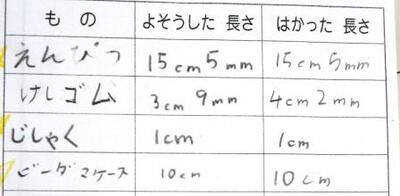 もの よそうした長さ はかった長さ
えんぴつ 15cm5mm 15cm5mm
けしゴム 3cm9mm 4cm2mm
じしゃく 1cm 1cm
ビーダマケース 10cm 10cm